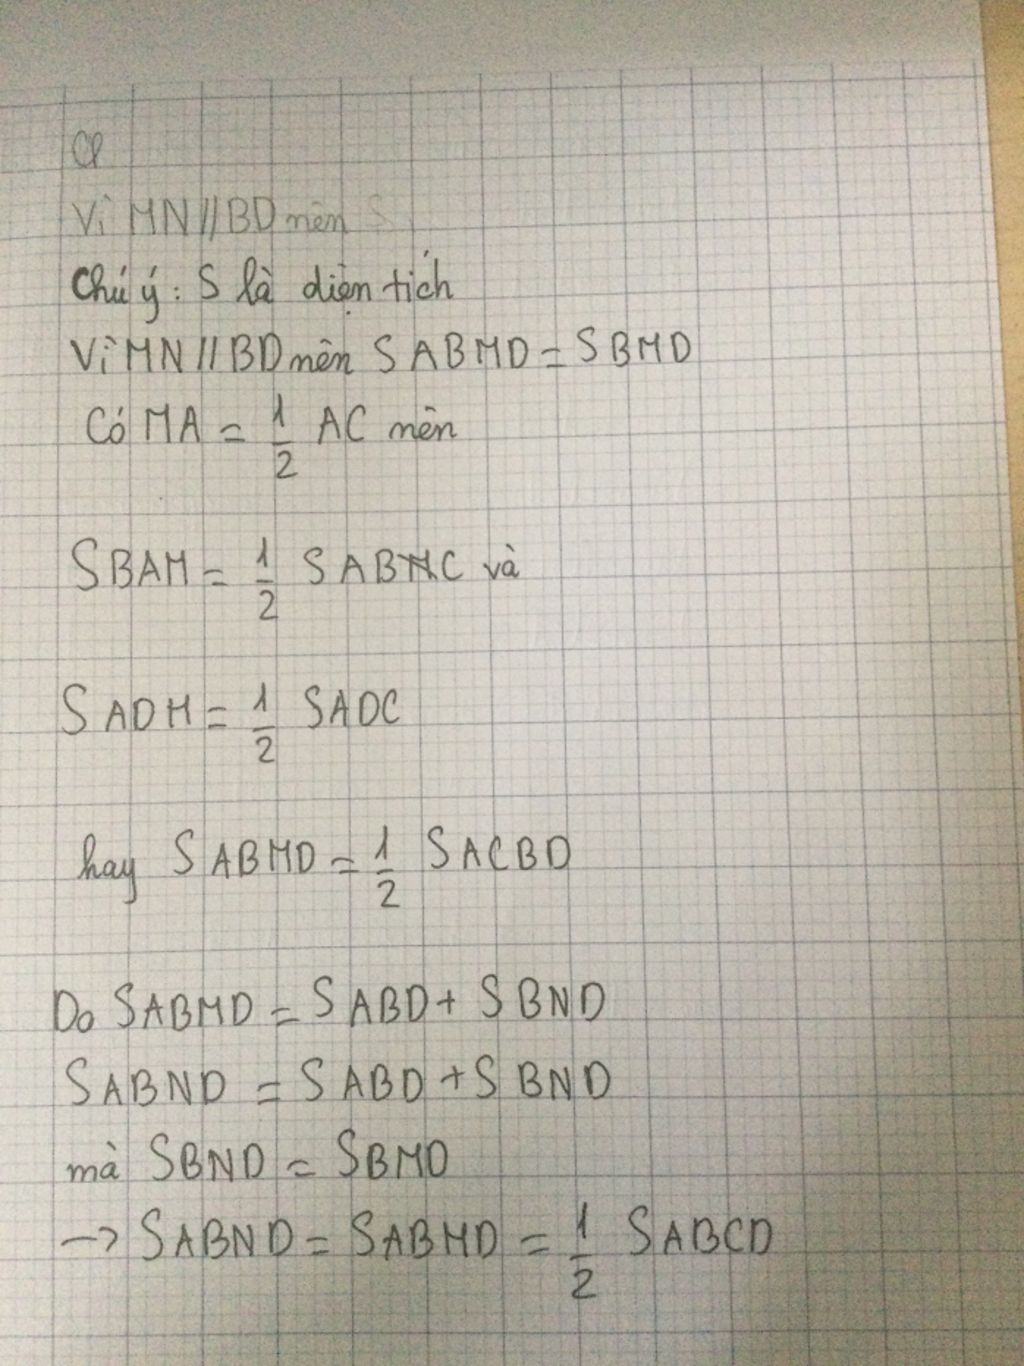 Vì MN//BD nên S
Chú ý: S là diện tích
Vì MN//BD nên SABMD = SBMD
Có MA = 1/2 AC nên
SBAM = 1/2 SABMC và
SADM = 1/2 SADC
hay SABMD = 1/2 SACBD
Do SABMD = SABD + SBND
SABND = SABD + SBND
mà SBND = SBMD
→ SABND = SABMD = 1/2 SABCD